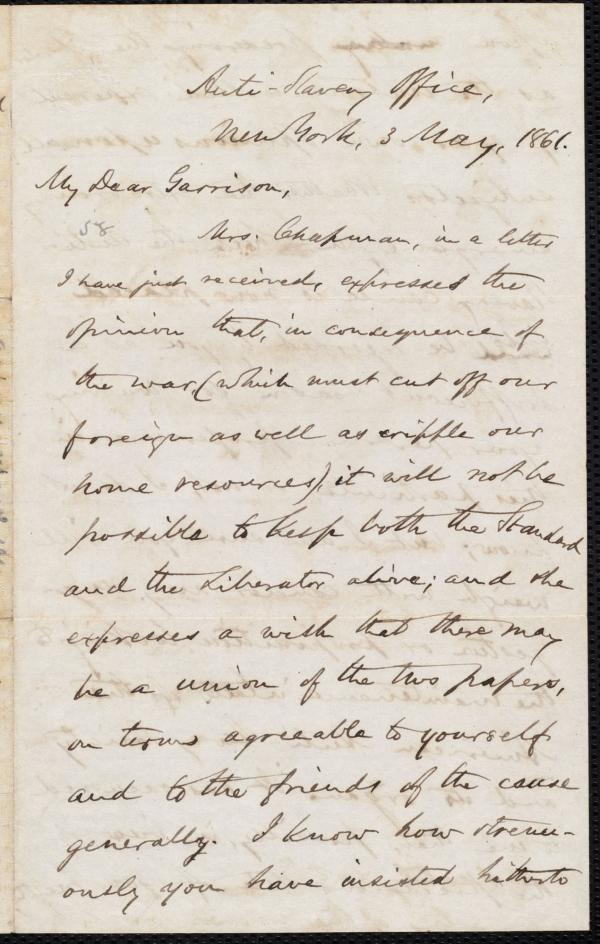 Anti-Slavery Office,
New York, 3 May, 1861.
My Dear Garrison,
58
Mrs. Chapman, in a letter
I have just received, expresses the
opinion that, in consequence of
the war, (which must cut off our
foreign as well as cripple our
home resources), it will not be
possible to keep both the Standard
and the Liberator alive; and she
expresses a wish that there may
be a union of the two papers,
on terms agreeable to yourself
and to the friends of the cause
generally. I know how strenu-
ously you have insisted hitherto